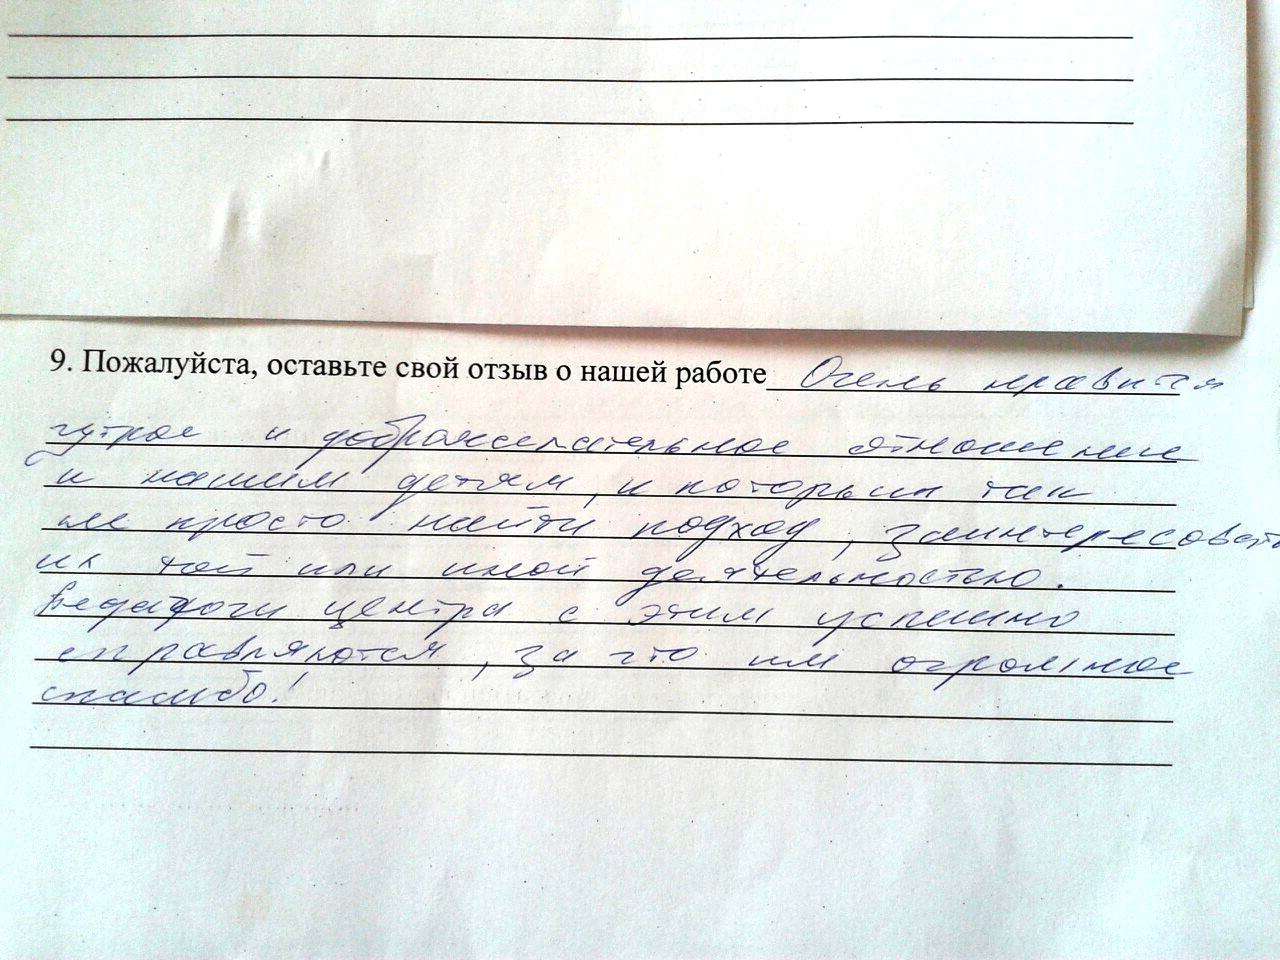 9. Пожалуйста, оставьте свой отзыв о нашей работе Очень нравится
чуткое и доброжелательное отношение
к нашим детям, к которым так
не просто найти подход, заинтересовать
их той или иной деятельностью.
Педагоги центра с этим успешно
справляются, за что им огромное
спасибо!